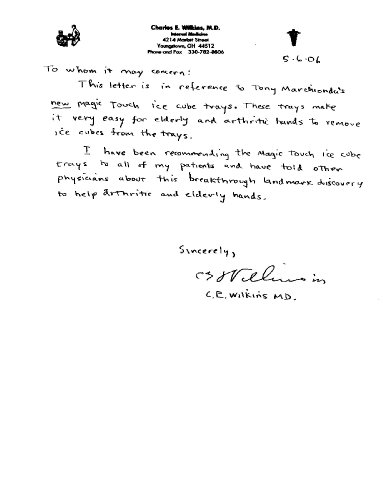 Charles E. Wilkins, M.D.
Internal Medicine
4214 Market Street
Youngstown, OH 44512
Phone and Fax 330-782-8606
5-6-06
To whom it may concern:
This letter is in reference to Tony Marchionda's
new Magic Touch ice cube trays. These trays make
it very easy for elderly and arthritic hands to remove
ice cubes from the trays.
I have been recommending the Magic Touch ice cube
trays to all of my patients and have told other
physicians about this breakthrough landmark discovery
to help arthritic and elderly hands.
Sincerely,
CE Wilkins
C.E. Wilkins MD.